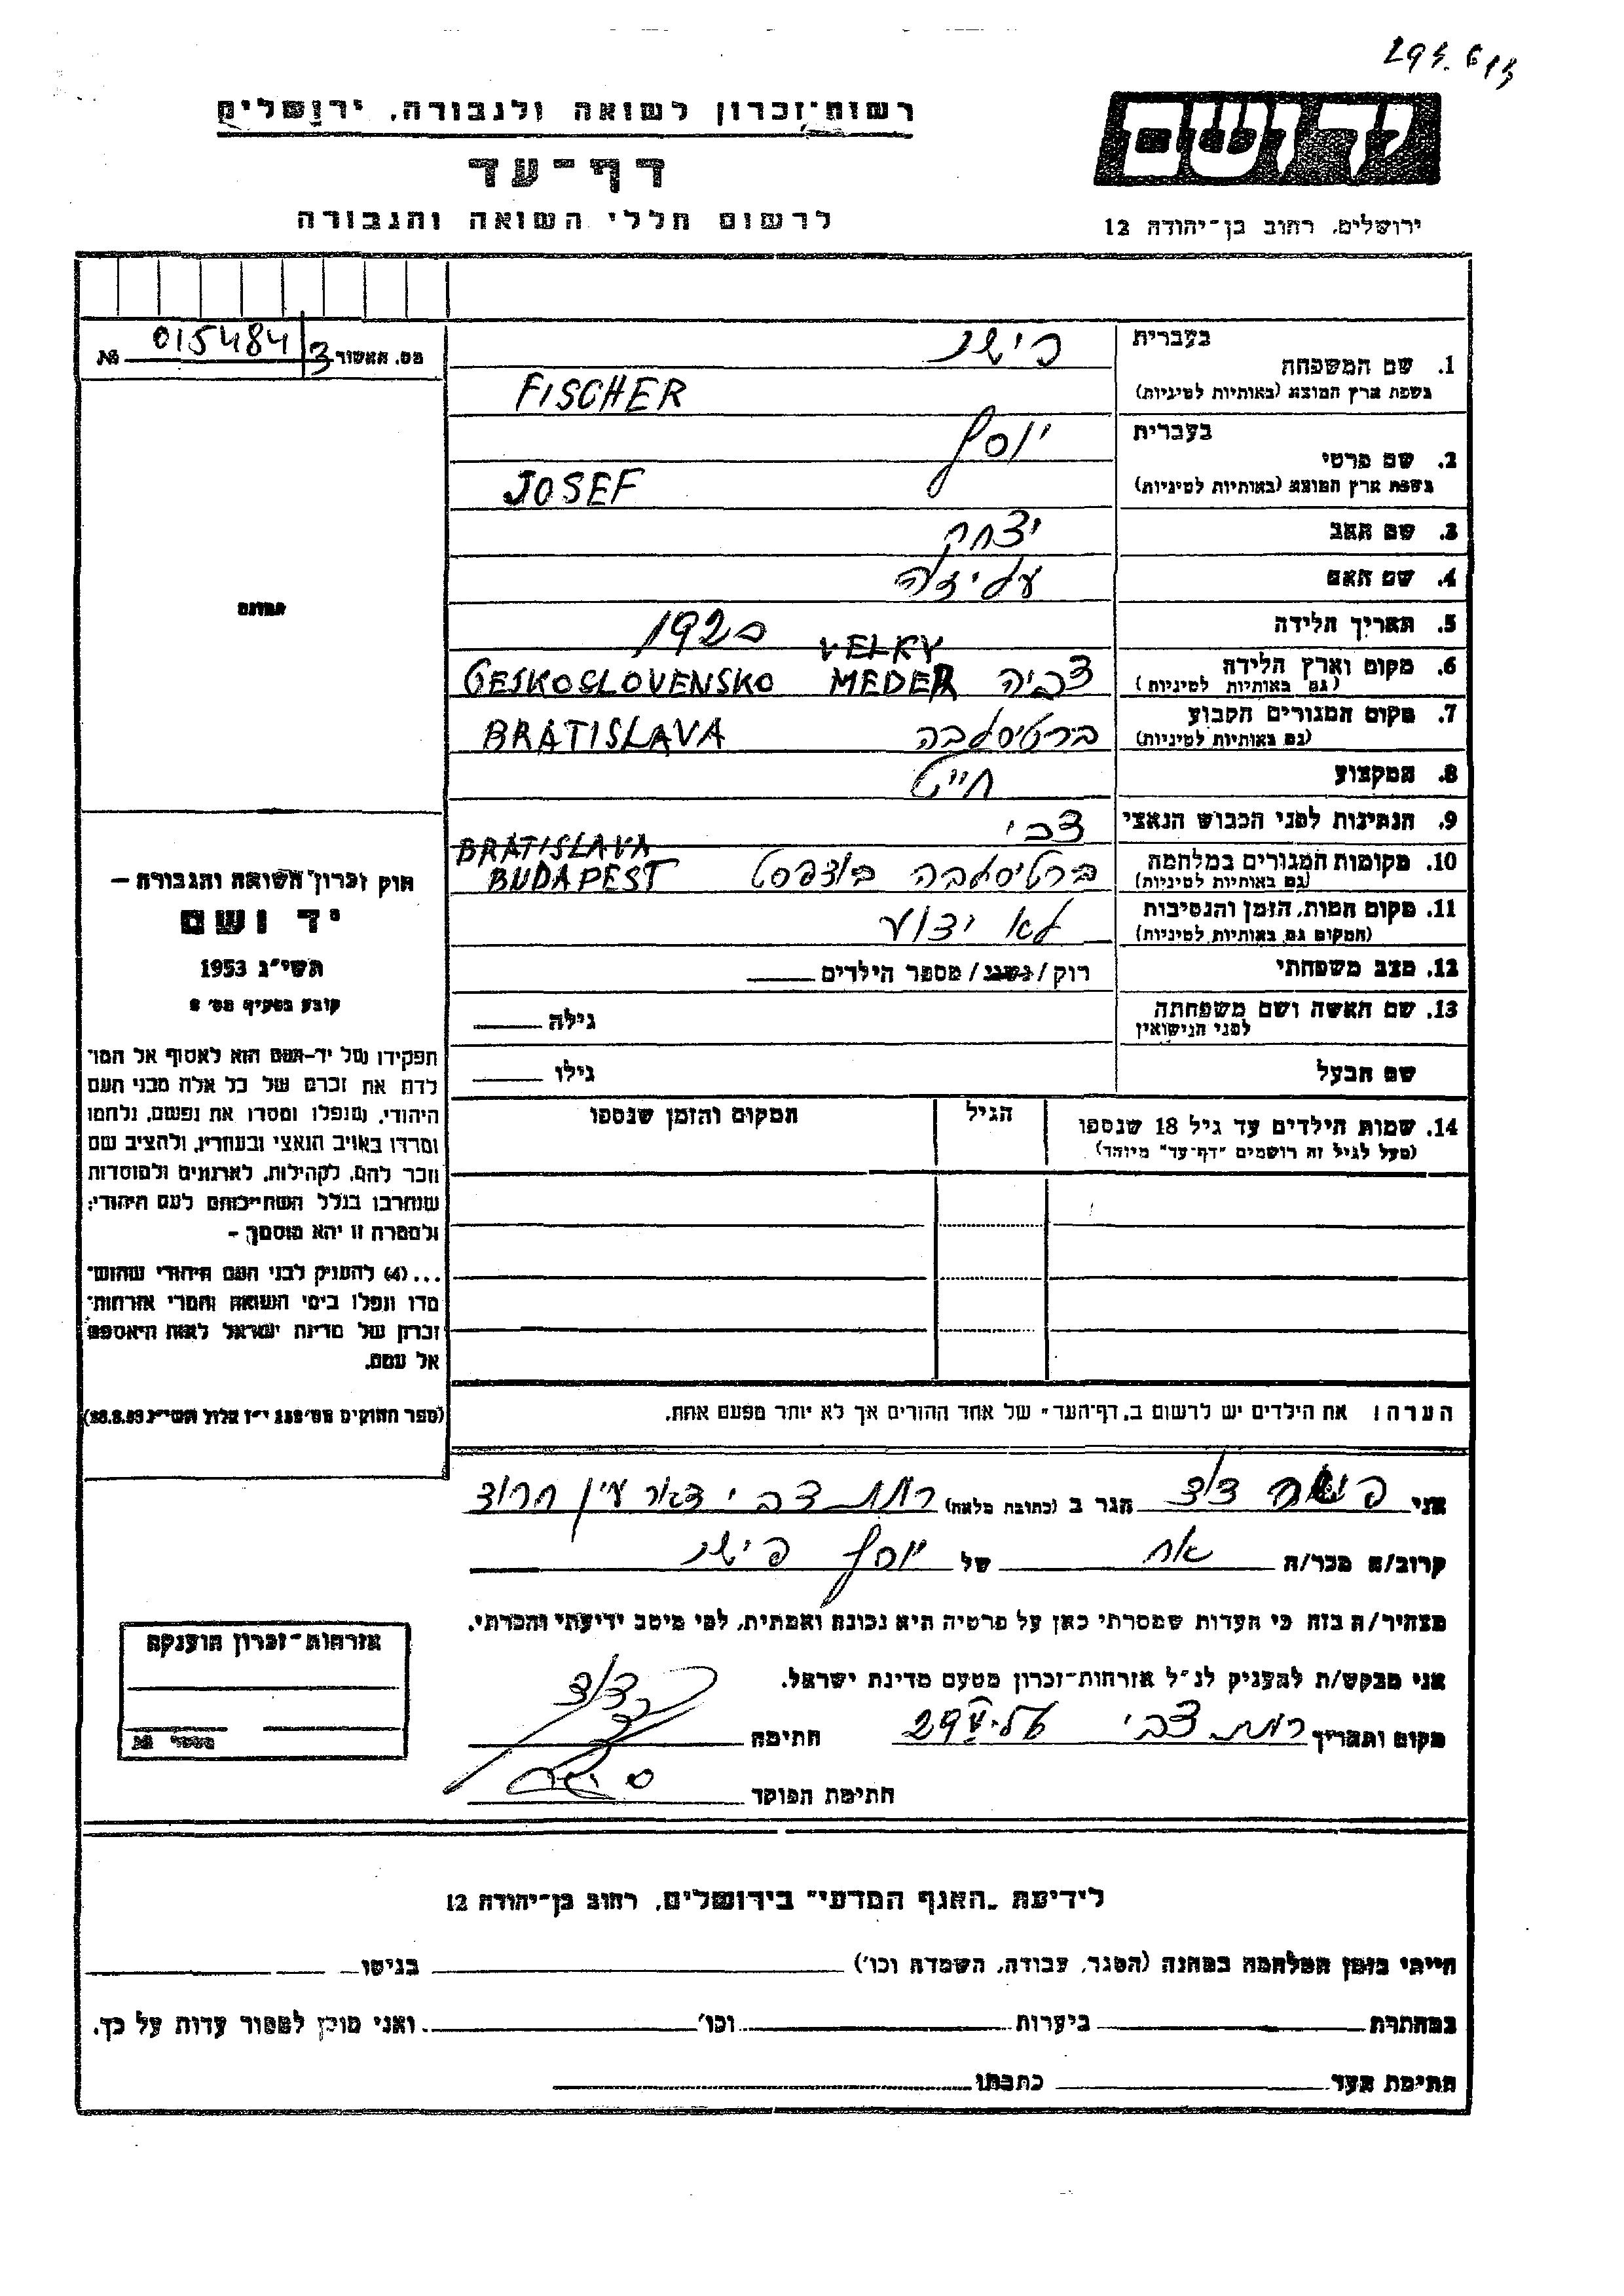 רשות-זכרון לשואה ולגבורה, ירושלים
דף-עד
לרשום חללי השואה והגבורה
יד ושם
ירושלים, רחוב בן-יהודה 12
מס. האשור 015484/3 №
בעברית פישר
1. שם המשפחה
בשפת ארץ המוצא (באותיות לטיניות) FISCHER
בעברית יוסף
2. שם פרטי
בשפת ארץ המוצא (באותיות לטיניות) JOSEF
3. שם האב יצחק
4. שם האם
5. תאריך הלידה 1920
6. מקום וארץ הלידה VELKY
(גם באותיות לטיניות) MEDER ČESKOSLOVENSKO
7. מקום המגורים הקבוע
(גם באותיות לטיניות) ברטיסלבה BRATISLAVA
8. המקצוע חייט
9. הנתינות לפני הכבוש הנאצי
10. מקומות המגורים במלחמה BRATISLAVA
(גם באותיות לטיניות) ברטיסלבה בודפסט BUDAPEST
11. מקום המות, הזמן והנסיבות לא ידוע
(המקום גם באותיות לטיניות)
12. מצב משפחתי רוק/נשוי/מספר הילדים
13. שם האשה ושם משפחתה
לפני הנישואין גילה
שם הבעל גילו
14. שמות הילדים עד גיל 18 שנספו הגיל המקום והזמן שנספו
(מעל לגיל זה רושמים "דף-עד" מיוחד)
הערה: את הילדים יש לרשום ב"דף-העד" של אחד ההורים אך לא יותר מפעם אחת.
תמונה
חוק זכרון השואה והגבורה –
יד ושם
תשי"ג 1953
קובע בסעיף מס' 2
תפקידו של יד-ושם הוא לאסוף אל המו־
לדת את זכרם של כל אלה מבני העם
היהודי, שנפלו ומסרו את נפשם, נלחמו
ומרדו באויב הנאצי ובעוזריו, ולהציב שם
וזכר להם, לקהילות, לארגונים ולמוסדות
שנחרבו בגלל השתייכותם לעם היהודי;
ולמטרה זו יהא מוסמך –
...(4) להעניק לבני העם היהודי שהוש־
מדו ונפלו בימי השואה והמרי אזרחות־
זכרון של מדינת ישראל לאות היאספם
אל עמם.
(ספר החוקים מס' 132 י"ז אלול תשי"ג 28.8.53)
אני פישר דוד הגר ב (כתובת מלאה) רמת צבי דאר עין חרוד
קרוב/ה מכר/ה אח של יוסף פישר
מצהיר/ה בזה כי העדות שמסרתי כאן על פרטיה היא נכונה ואמתית, לפי מיטב ידיעתי והכרתי.
אני מבקש/ת להעניק לנ"ל אזרחות-זכרון מטעם מדינת ישראל.
מקום ותאריך רמת צבי 29 חתימה
חתימת הפוקד
אזרחות-זכרון הוענקה
מספר №
לידיעת "האגף המדעי" בירושלים, רחוב בן-יהודה 12
הייתי בזמן המלחמה במחנה (הסגר, עבודה, השמדה וכו') בגיטו
במחתרת ביערות וכו' ואני מוכן למסור עדות על כך.
חתימת העד כתבתו